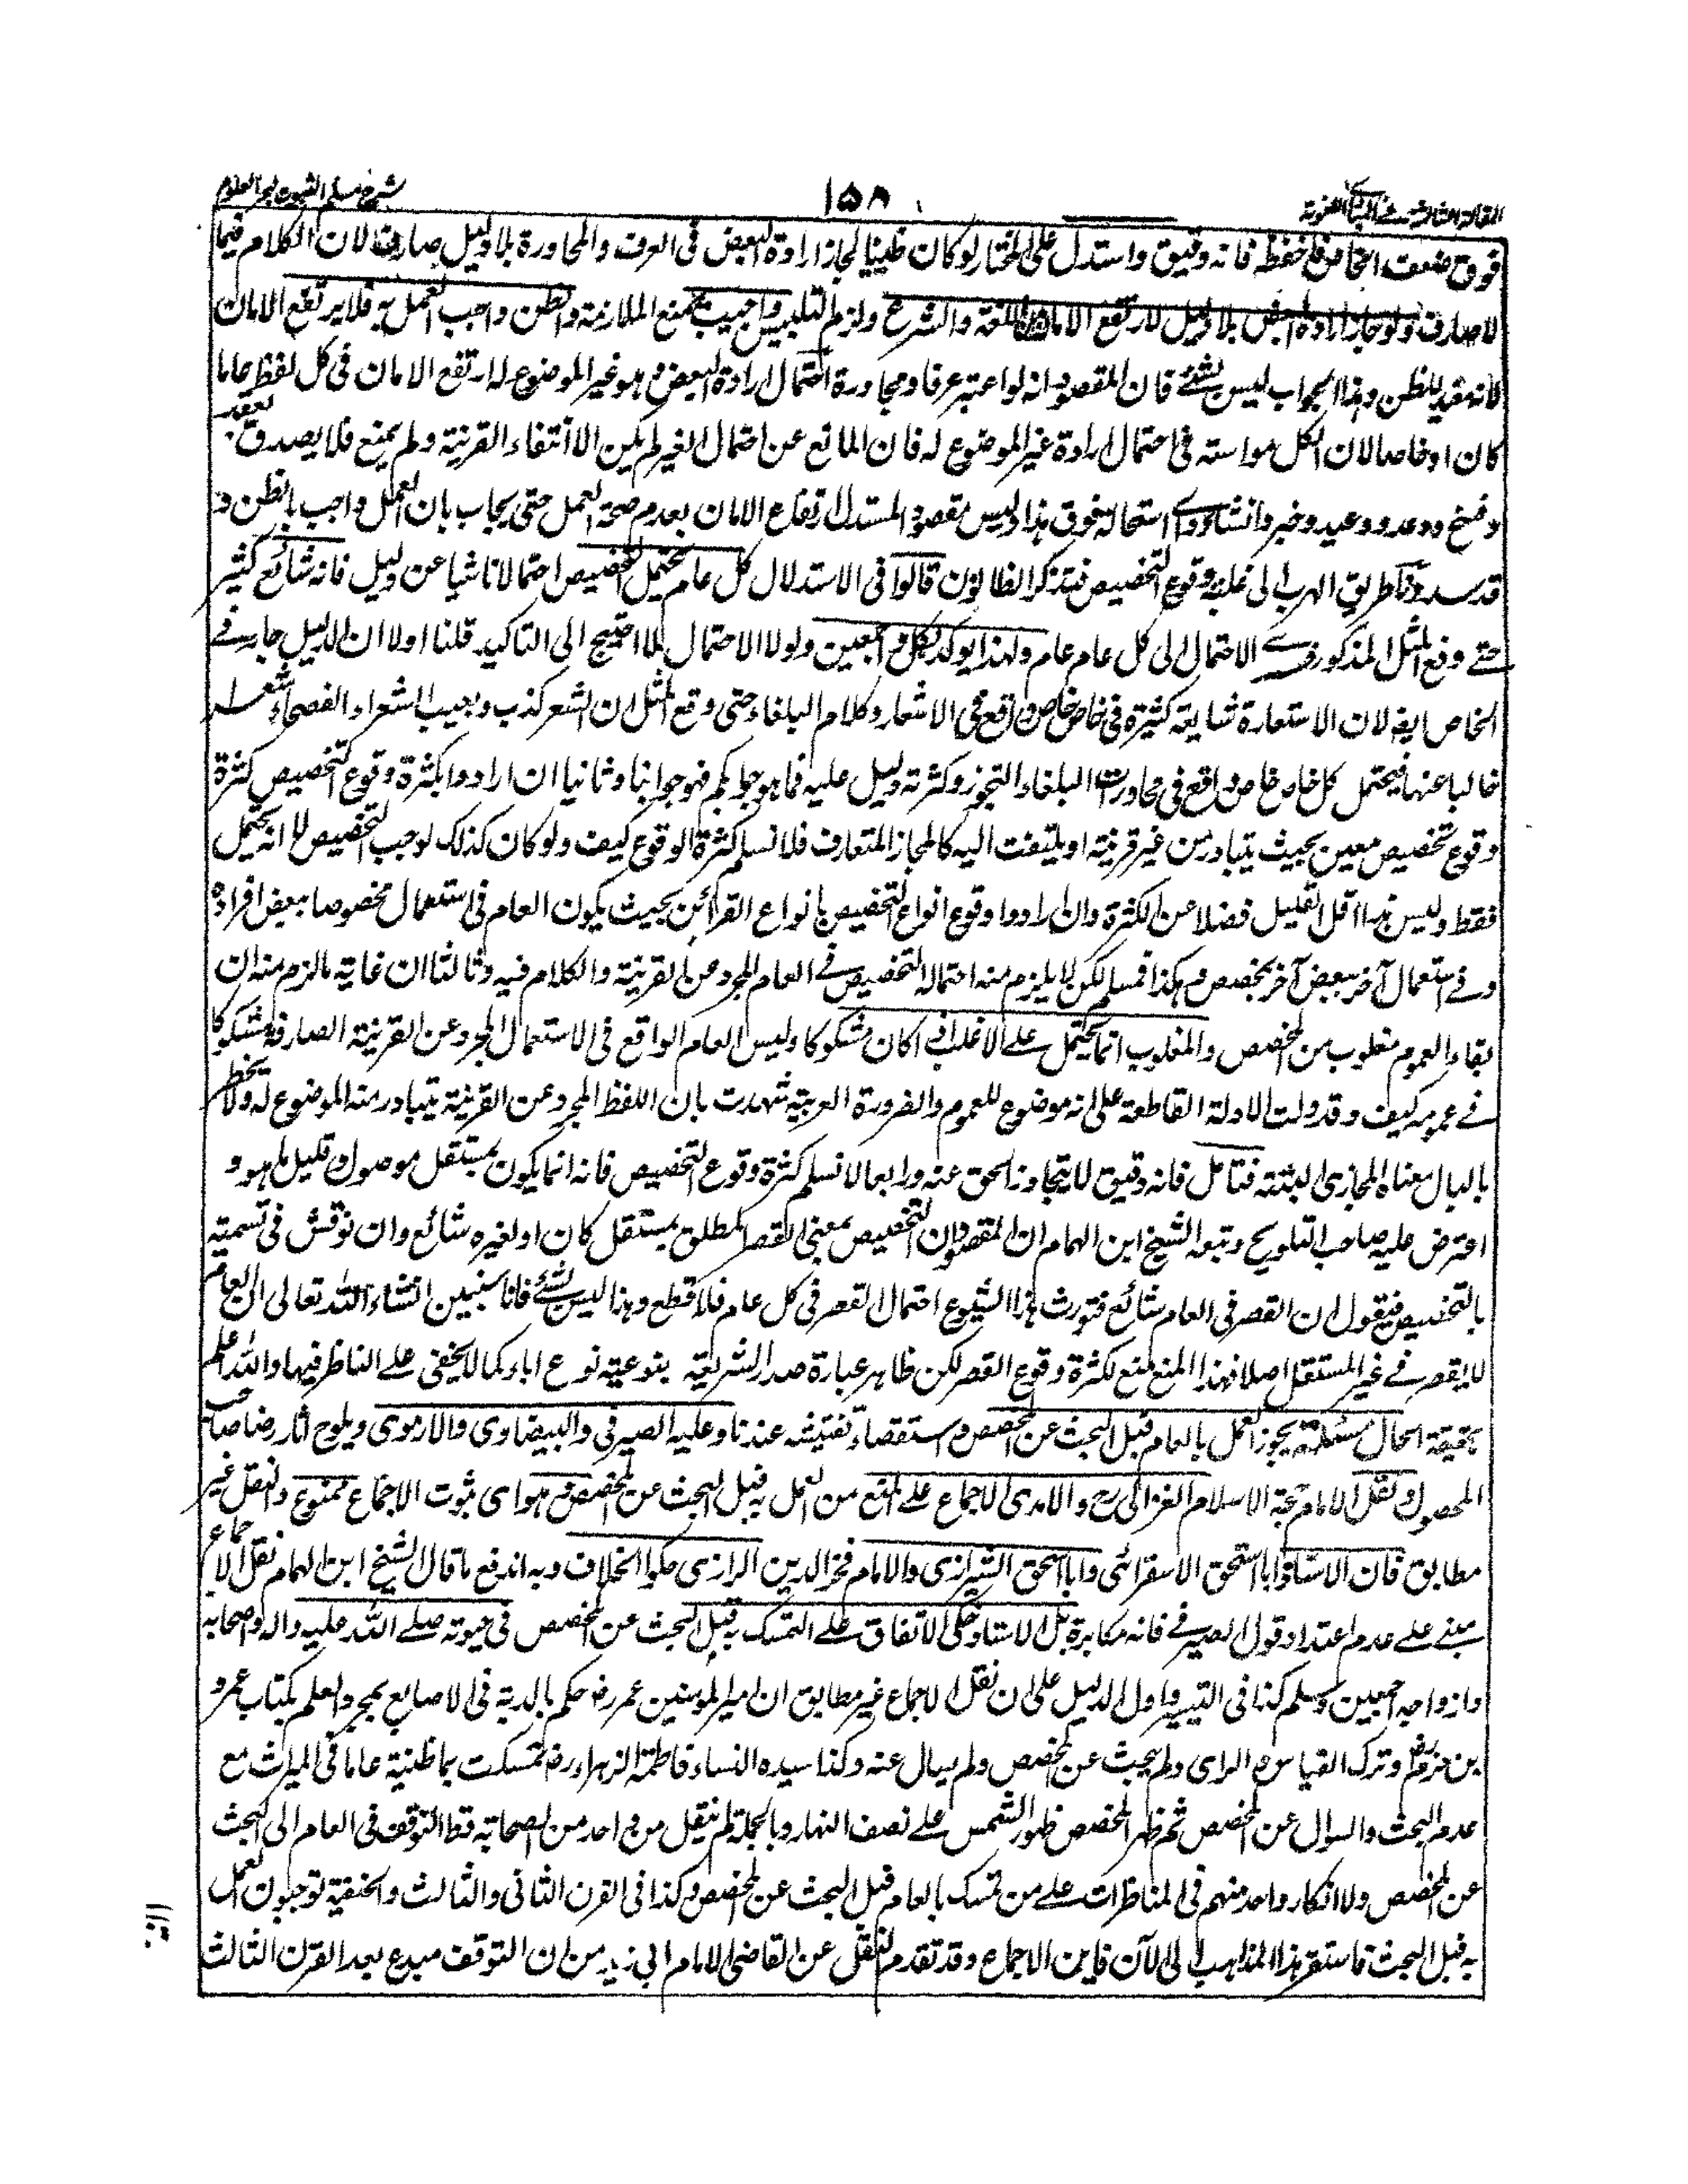 شرح مسلم الثبوت لبحر العلوم
۱۵۸
المقالة الثالثة فى المبادى اللغوية
فوق ضعف احتجاج فاحفظه فانه دقيق واستدل على المختار لو كان ظنيا لجاز ارادة البعض فى العرف والمحاورة بلا دليل صارف لان الكلام فيما
لا صارف ولو جاز ارادة البعض بلا دليل لارتفع الامان عن اللغة والشرع ولزم التلبيس واجيب بمنع الملازمة والظن واجب العمل به فلا يرتفع الامان
لانه مفيد للظن وهذا الجواب ليس بشئ فان المقصود انه لو اعتبر عرفا ومحاورة احتمال ارادة البعض وهو غير الموضوع له ارتفع الامان فى كل لفظ عاما
كان او خاصا لان الكل مواسية فى احتمال ارادة غير الموضوع له فان المانع عن احتمال الغير لم يكن الا انتفاء القرينة ولم يمنع فلا يصدق بعقد
وفسخ ووعد ووعيد وخبر وانشاء واى استحالة فوق هذا وليس مقصود المستدل ارتفاع الامان بعدم صحة العمل حتى يجاب بان العمل واجب بالظن و
قد سددنا طريق الهرب الى غلبة وقوع التخصيص فتذكر الظانون قالوا فى الاستدلال كل عام يحتمل التخصيص احتمالا ناشيا عن دليل فانه شائع كثير
حتى وقع المثل المذكور الاحتمال الى كل عام عام ولهذا يوكد بكل واجمعين ولولا الاحتمال لما احتيج الى التاكيد قلنا اولا ان الدليل جار فى
الخاص ايضا لان الاستعارة شايعة كثيرة فى خاص خاص واقع فى الاشعار وكلام البلغاء حتى وقع المثل ان الشعر كذب ويعيب الشعراء الفصحاء شعرا
خاليا عنها فيحتمل كل خاص خاص واقع فى محاورات البلغاء التجوز وكثرته دليل عليه فما هو جوابكم فهو جوابنا وثانيا ان ارادوا بكثرة وقوع التخصيص كثرة
وقوع تخصيص معين بحيث يتبادر من غير قرينة او يلتفت اليه كالمجاز المتعارف فلا نسلم كثرة الوقوع كيف ولو كان كذلك لوجب التخصيص لا انه يحتمل
فقط وليس هذا اقل القليل فضلا عن الكثرة وان ارادوا وقوع انواع التخصيص بانواع القرائن بحيث يكون العام فى استعمال مخصوصا ببعض افراده
وفى استعمال آخر ببعض آخر بمخصص وهكذا فمسلم لكن لا يلزم منه احتماله التخصيص فى العام المجرد عن القرينة والكلام فيه وثالثا ان غاية ما لزم منه ان
بقاء العموم مغلوب من المخصص والمغلوب انما يحتمل على الاغلب اذا كان مشكوكا وليس العام الواقع فى الاستعمال المجرد عن القرينة الصارفة مشكوكا
فى عمومه كيف وقد دلت الادلة القاطعة على انه موضوع للعموم والضرورة العربية شهدت بان اللفظ المجرد عن القرينة يتبادر منه الموضوع له ولا يخطر
بالبال معناه المجازى البتته فتامل فانه دقيق لا يتجاوز الحق عنه ورابعا لا نسلم كثرة وقوع التخصيص فانه انما يكون بمستقل موصول وقليل ما هو و
اعترض عليه صاحب التلويح وتبعه الشيخ ابن الهمام ان المقصود ان التخصيص بمعنى القصر المطلق بمستقل كان او لغيره شائع وان نوقش فى تسميته
بالتخصيص فيقول ان القصر فى العام شائع فتورث هذا الشيوع احتمال القصر فى كل عام فلا قطع وهذا ليس بشئ فانا سنبين انشاء الله تعالى ان العام
لا يقصر فى غير المستقل اصلا فهذا المنع منع لكثرة وقوع القصر لكن ظاهر عبارة صدر الشريعة ينبو عنه نوع اباء كما لا يخفى على الناظر فيها والله اعلم
بحقيقة الحال مسئلة يجوز العمل بالعام قبل البحث عن المخصص واستقصاء تفتيشه عندنا وعليه الصيرفى والبيضاوى والارموى ويلوح آثار رضا صاحب
المحصول ونقل الامام حجة الاسلام الغزالى رح والامدى الاجماع على المنع من العمل به قبل البحث عن المخصص وهو اى ثبوت الاجماع ممنوع والنقل غير
مطابق فان الاستاذ ابا اسحق الاسفرائنى وابا اسحق الشيرازى والامام فخر الدين الرازى حكوا الخلاف وبه اندفع ما قال الشيخ ابن الهمام نقل الاجماع
مبنى على عدم اعتداد قول الصيرفى فانه مكابرة بل الاستاذ حكى الاتفاق على التمسك به قبل البحث عن المخصص فى حيوته صلى الله عليه واله واصحابه
وازواجه اجمعين وسلم كذا فى التيسير واول الدليل على ان نقل الاجماع غير مطابق ان امير المومنين عمر رض حكم بالدية فى الاصابع بمجرد العلم بكتاب عمرو
بن حزم وترك القياس والراى ولم يبحث عن مخصص ولم يسال عنه وكذا سيدة النساء فاطمة الزهراء رض تمسكت بما ظنيته عاما فى الميراث مع
عدم البحث والسوال عن المخصص ثم ظهر المخصص ظهور الشمس على نصف النهار وبالجملة لم ينقل من واحد من الصحابة قط التوقف فى العام الى البحث
عن المخصص ولا انكار واحد منهم فى المناظرات على من تمسك بالعام قبل البحث عن المخصص وكذا فى القرن الثانى والثالث والحنفية يوجبون العمل
به قبل البحث فاستقر هذا المذاهب الى الآن فاين الاجماع وقد تقدم النقل عن القاضى الامام ابى زيد من ان التوقف مبدع بعد القرن الثالث